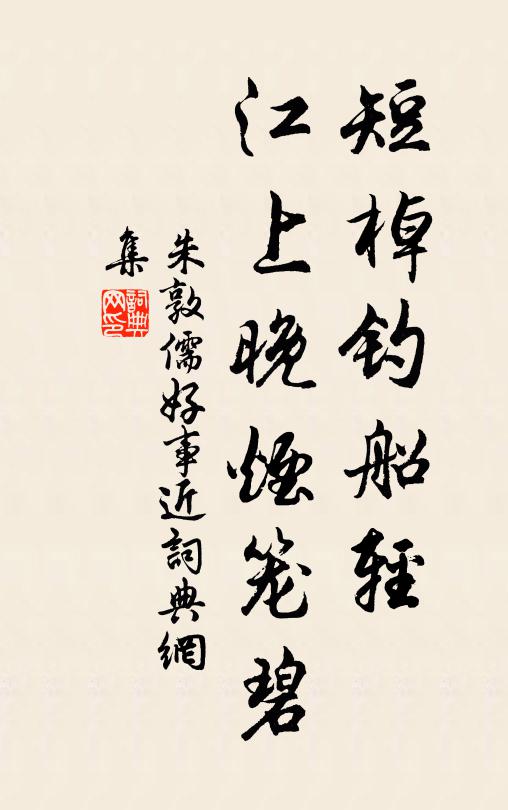 短棹钓船輕
江上晚煙笼碧
朱敦儒好事近詞典網
集
詞典网印